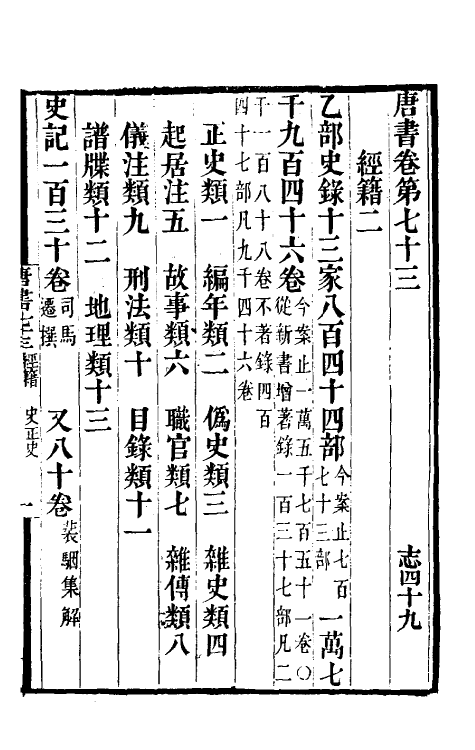 唐書卷第七十三 志四十九
經籍二
乙部史錄十三家八百四十四部今案止七百七十三部一萬七
千九百四十六卷今案止一萬五千七百五十一卷○從新書增著錄一百三十七部凡二
千一百八十八卷不著錄四百四十七部凡九千四十六卷
正史類一 編年類二 僞史類三 雜史類四
起居注五 故事類六 職官類七 雜傳類八
儀注類九 刑法類十 目錄類十一
譜牒類十二 地理類十三
史記一百三十卷司馬遷撰 又八十卷裴駰集解
唐書七十三 經籍 史正史 一